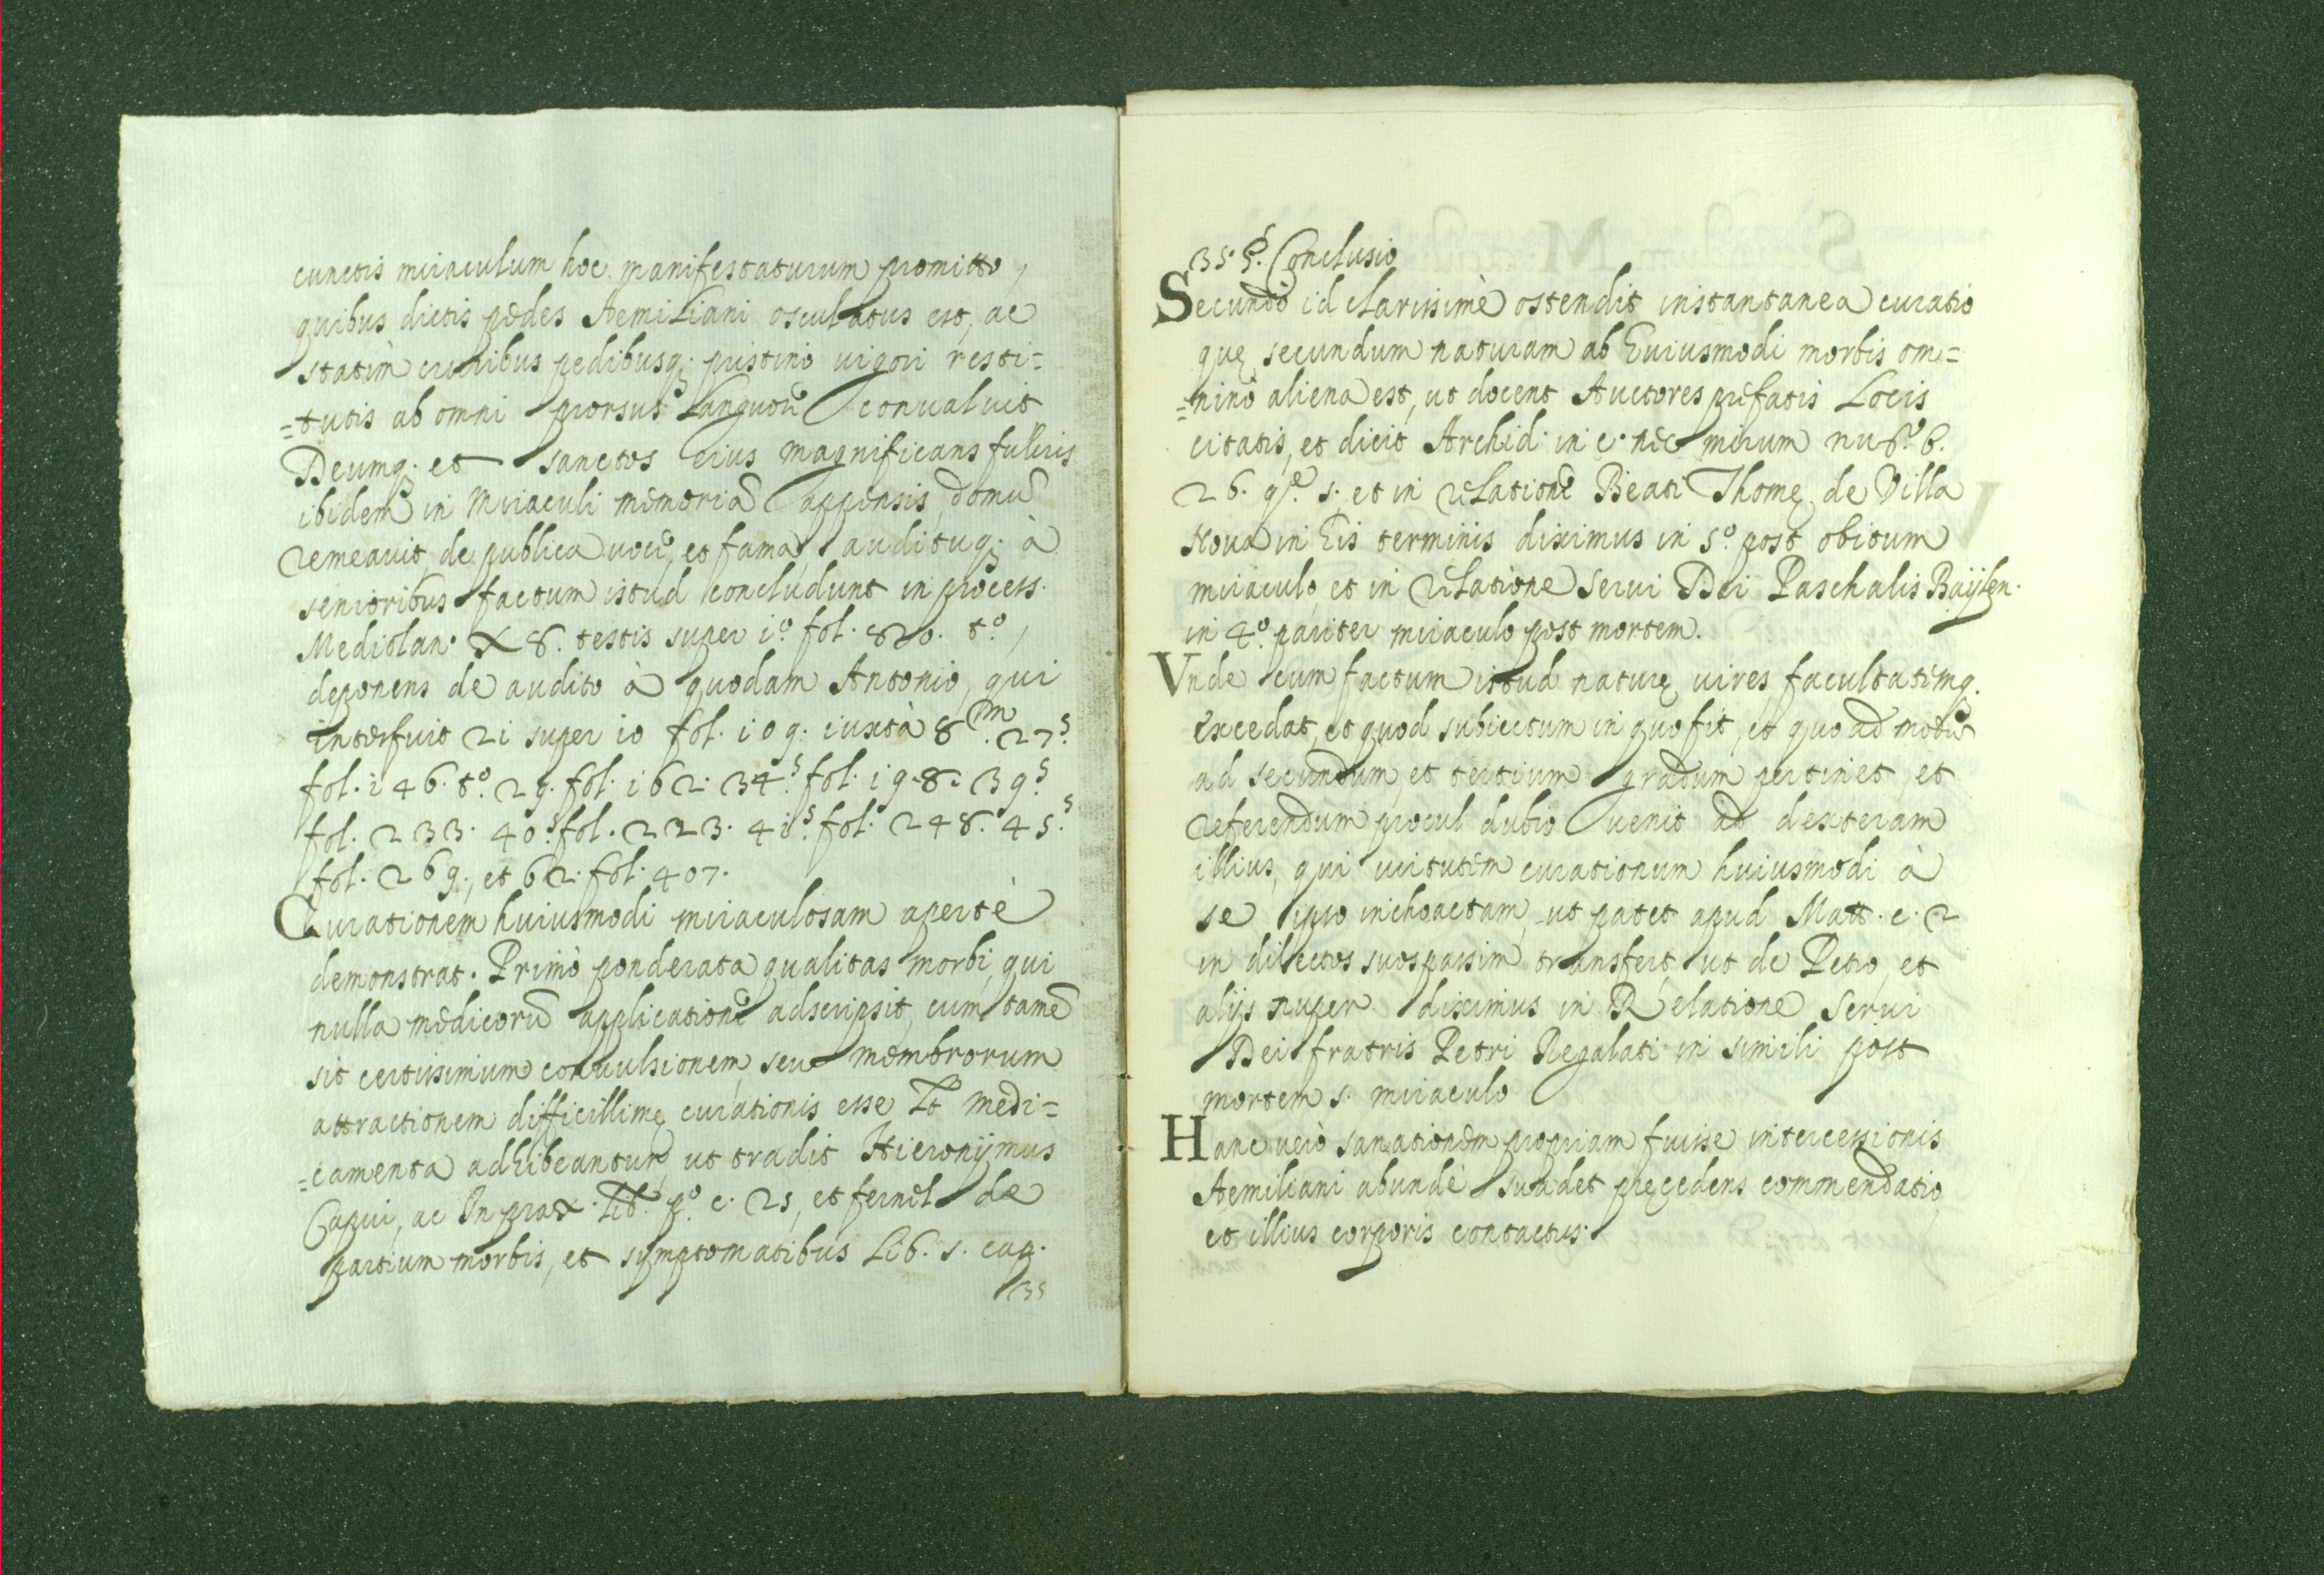 cunctis miraculum hoc manifestaturum promitto,
quibus dictis pedes Aemiliani osculatus est, ac
statim cruribus pedibusq. pristino uigori resti=
=tutis ab omni prorsus languore conualuit
Deumq. et sanctos eius magnificans fulcris
ibidem in Miraculi memoriã appensis, domũ
remeauit, de publica uoce, et fama, audituq. à
senioribus factum istud concludunt in process.
Mediolan. X 8. testis super i.º fol. 820. tº,
deponens de audito à quodam Antonio, qui
interfuit 2i super io fol. i09. iuxtà 8.m 27.s
fol. i46. tº. 29. fol. i62. 34.s fol. i98. 39.s
fol. 233. 40.s fol. 223. 4i.s fol. 248. 45.s
fol. 269., et 62. fol. 407.
Curationem huiusmodi miraculosam apertè
demonstrat. Primò ponderata qualitas morbi, qui
nulla medicorũ applicatione adscripsit, cum tamẽ
sit certissimum conuulsionem, seu membrorum
attractionem difficillimę curationis esse Lt medi=
=camenta adhibeantur, ut tradit Hieronÿmus
Capiu, ac In prax. Lib. pº. c. 25, et fernel de
partium morbis, et sÿmptomatibus Lib. 5. cap.
35
35. §. Conclusio
Secundò id clarissimè ostendit instantanea curatio
quę secundum naturam ab Euiusmodi morbis om=
=ninò aliena est, ut docent Auctores prefatis Locis
citatis, et dicit Archid. in c. nec mirum nu.º 6.
26. q.e 5. et in relatione Beati Thomę de Villa
Noua in Eis terminis diximus in 5.º post obitum
miraculo, et in relatione serui Dei Paschalis Baÿlen.
in 4.º pariter miraculo post mortem.
Vnde cum factum istud naturę uires facultatemq.
excedat, et quod subiectum in quo fit, et quo ad modũ
ad secundum, et tertium gradum pertinet, et
referendum procul dubio uenit ad dexteram
illius, qui uirtutem curationum huiusmodi à
se ipso inchoactam, ut patet apud Matt. c. 2
in dilectos suos passim transfert ut de Petro, et
alijs nuper diximus in Relatione Serui
Dei fratris Petri Regalati in simili post
mortem 5. miraculo
Hanc uerò sanationem propriam fuisse intercessionis
Aemiliani abundè suadet pręcedens commendatio
et illius corporis contactus.